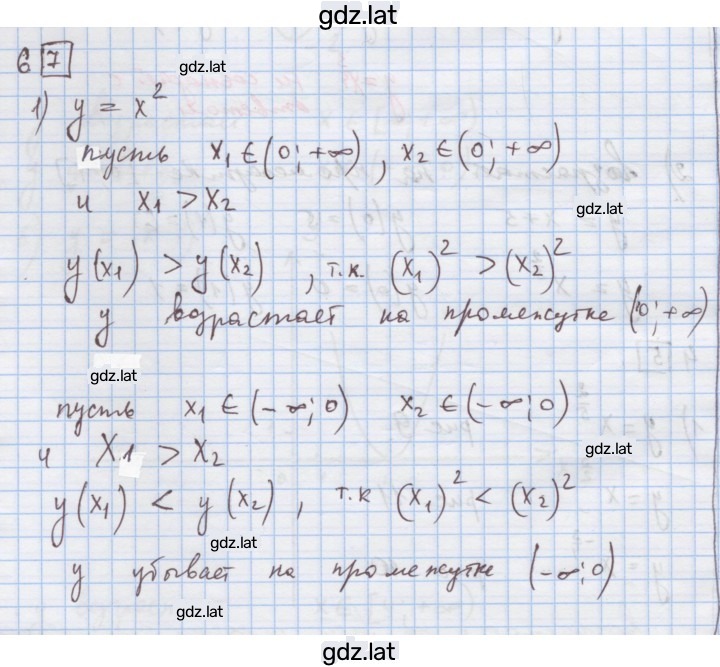 gdz.lat
6 7
gdz.lat
1) y = x²
пусть x₁ ∈ (0; +∞), x₂ ∈ (0; +∞)
и x₁ > x₂
gdz.lat
y(x₁) > y(x₂), т.к. (x₁)² > (x₂)²
y возрастает на промежутке (0; +∞)
gdz.lat
пусть x₁ ∈ (-∞; 0) x₂ ∈ (-∞; 0)
и x₁ > x₂
gdz.lat
y(x₁) < y(x₂), т.к (x₁)² < (x₂)²
y убывает на промежутке (-∞; 0)
gdz.lat
gdz.lat